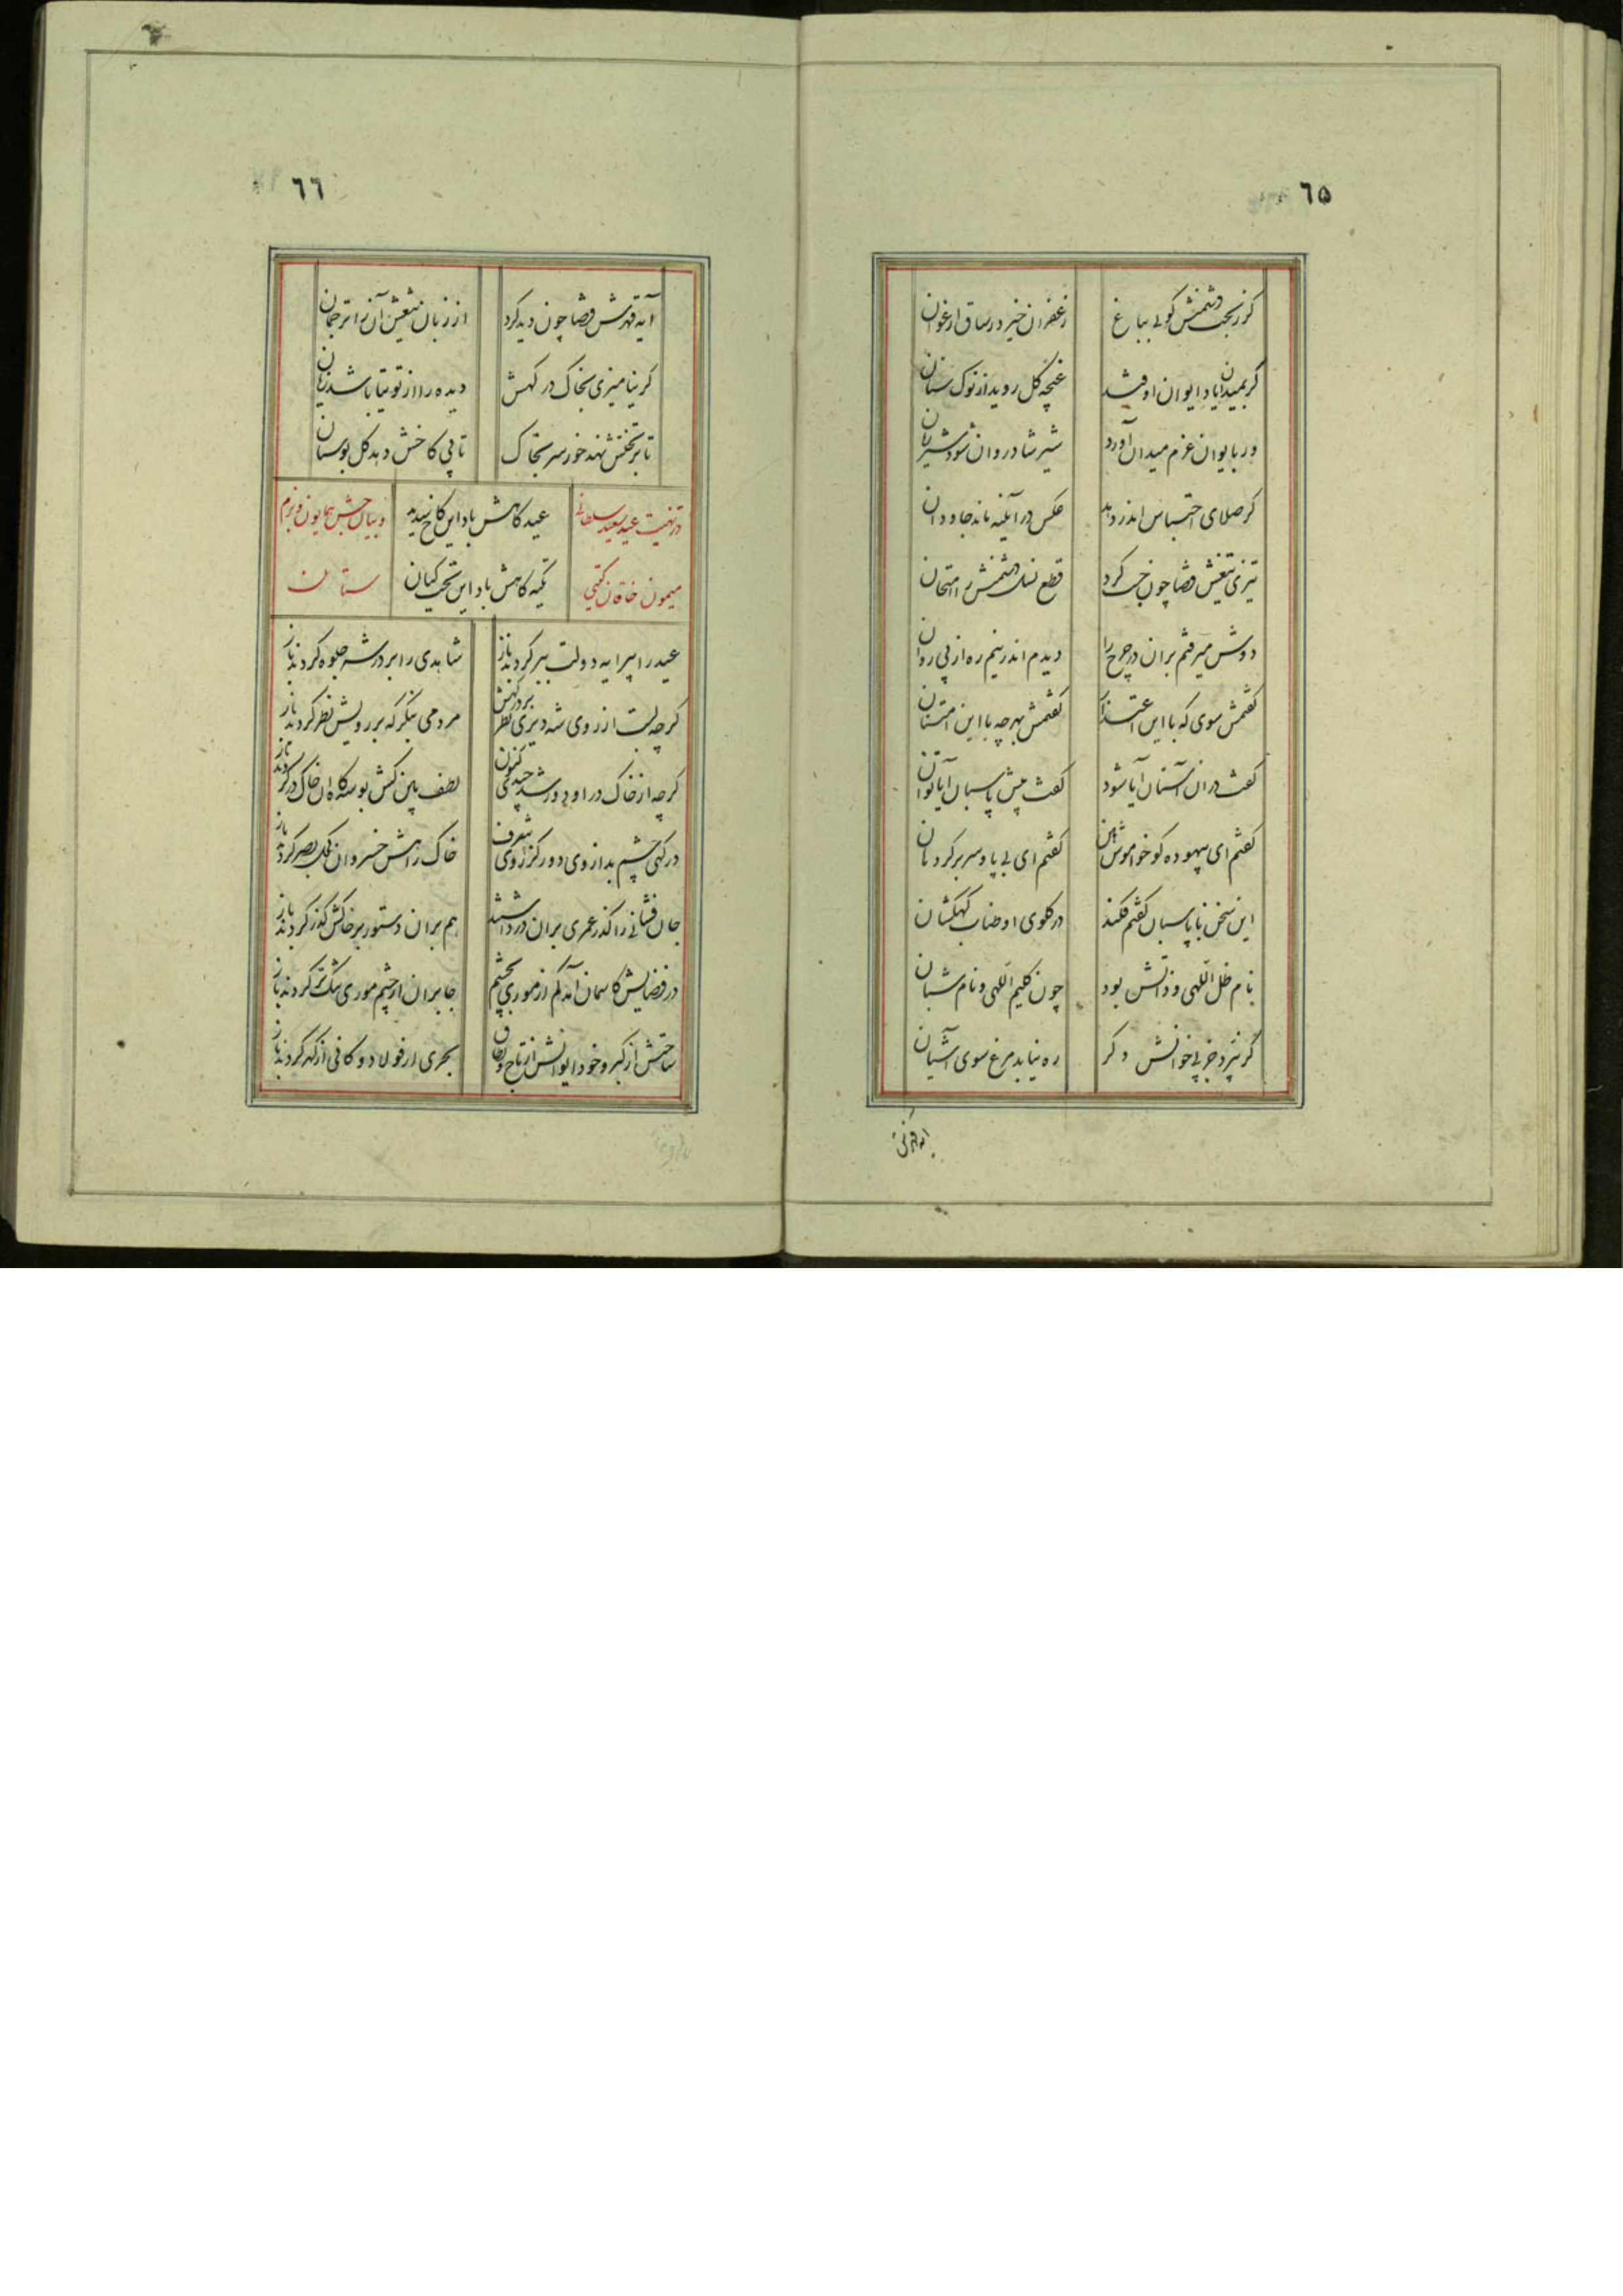 ٦٥
کر ز بخت دشمنش کوئی بباغ
زعفران خیزد ز ساق ارغوان
کر بمیدان یاد ایوان اوفتد
غنچه کل روید از نوک سنان
ور بایوان عزم میدان آورد
شیر شادروان شود شیر ژیان
کر صلای احتباس اندر دهد
عکس در آئینه ماند جاودان
تیزی تیغش قضا چون کرد
قطع نسل دشمنش را امتحان
دوش میرفتم بران در چرخ را
دیدم اندر نیم ره از پی روان
کفتمش سوی که با این اعتذار
کفتمش بهر چه با این امتنان
کفت در ان آستان آیا شود
کفت پیش پاسبان آیا توان
کفتم ای بیهوده کو خواموش هین
کفتم ای بی پا و سر بر کرد هان
این سخن با پاسبان کفتم فکند
در کلوی او طناب کهکشان
نام ظل اللهی و ذاتش بود
چون کلیم اللهی و نام شبان
کر نپرد جز پی خوانش دکر
ره نیابد مرغ سوی آشیان
٦٦
آیه قهرش قضا چون دید کرد
از زبان تیغش آن را ترجمان
کر نیامیزی بخاک درکهش
دیده را از توتیا باشد زیان
تا بر تختش نهد خور سر بخاک
تا پی کاخش دهد کل بوستان
در تهنیت عید سعید سلطانی
عید کاهش باد این کاخ سپید
و بیان جشن همایون و بزم
میمون خاقان کیتی
تکیه کاهش باد این تخت کیان
ستان
عید را پیرایه دولت ببر کردند باز
شاهدی را بر در شه جلوه کر کردند باز
کرچه بست از روی شه دیری نظر بر درکهش
مردمی بنکر که بر رویش نظر کردند باز
کرچه از خاک در او بد ورشد چندی کنون
لطف بین کش بوسه کاه ان خاک در کردند باز
درکهی چشم بد از وی دور کز روی شرف
خاک راهش خسروان کحل بصر کردند باز
جان فشانی را کذر عمری بران در داشتند
هم بران دستور بر خاکش کذر کردند باز
در فضایش کاسمان آمد کم از موری بچشم
جا بران از چشم موری تنک تر کردند باز
ساحتش از کبر و خود ایوانش از تاج و طاق
بحری از فولاد و کانی از کهر کردند باز